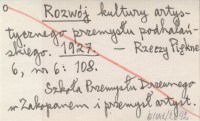 o
Rozwój kultury artys-
tycznego przemysłu podhalań-
skiego. 1927. — Rzeczy Piękne
6, no 6: 108.
Szkoła Przemysłu Drzewnego
w Zakopanem i przemysł artyst.